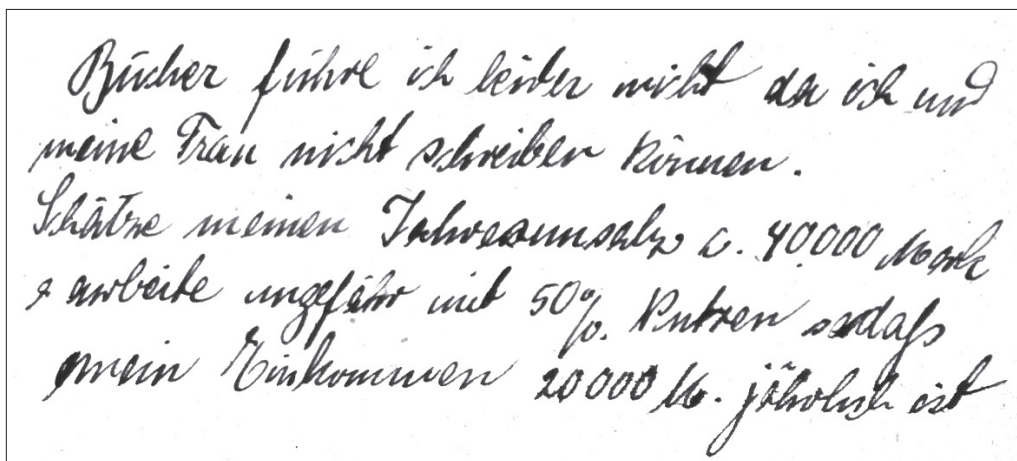 Bücher führe ich leider nicht da ich und
meine Frau nicht schreiben können.
Schätze meinen Jahresumsatz c. 40.000 Mark
& arbeite ungefähr mit 50%. Nutzen sodaß
mein Einkommen 20000 M. jährlich ist